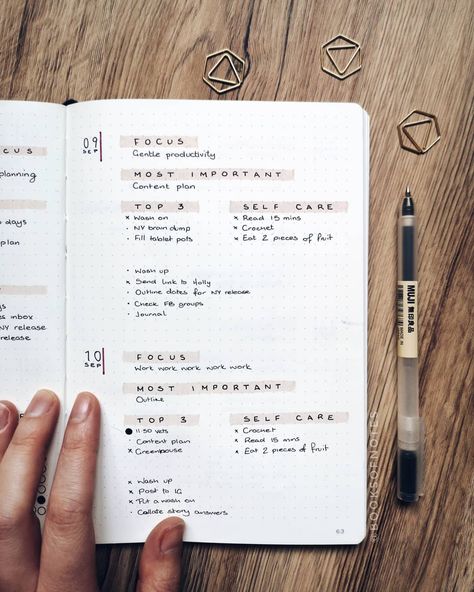 CUS
planning
o days
plan
es inbox
NY release
release
09
SEP
FOCUS
Gentle productivity
MOST IMPORTANT
Content plan
TOP 3
× Wash on
· NY brain dump
· Fill tablet pots
SELF CARE
× Read 15 mins
× Crochet
× Eat 2 pieces of fruit
· Wash up
× Send link to Holly
· Outline dates for NY release
· Check FB groups
· Journal
10
SEP
FOCUS
Work work work work work
MOST IMPORTANT
Outline
TOP 3
● 11:50 vets
· Content plan
× Greenhouse
SELF CARE
× Crochet
× Read 15 mins
× Eat 2 pieces of fruit
× Wash up
× Post to IG
× Put a wash on
· Collate story answers
63
MUJI 無印良品
@BOOKSOFNOTES